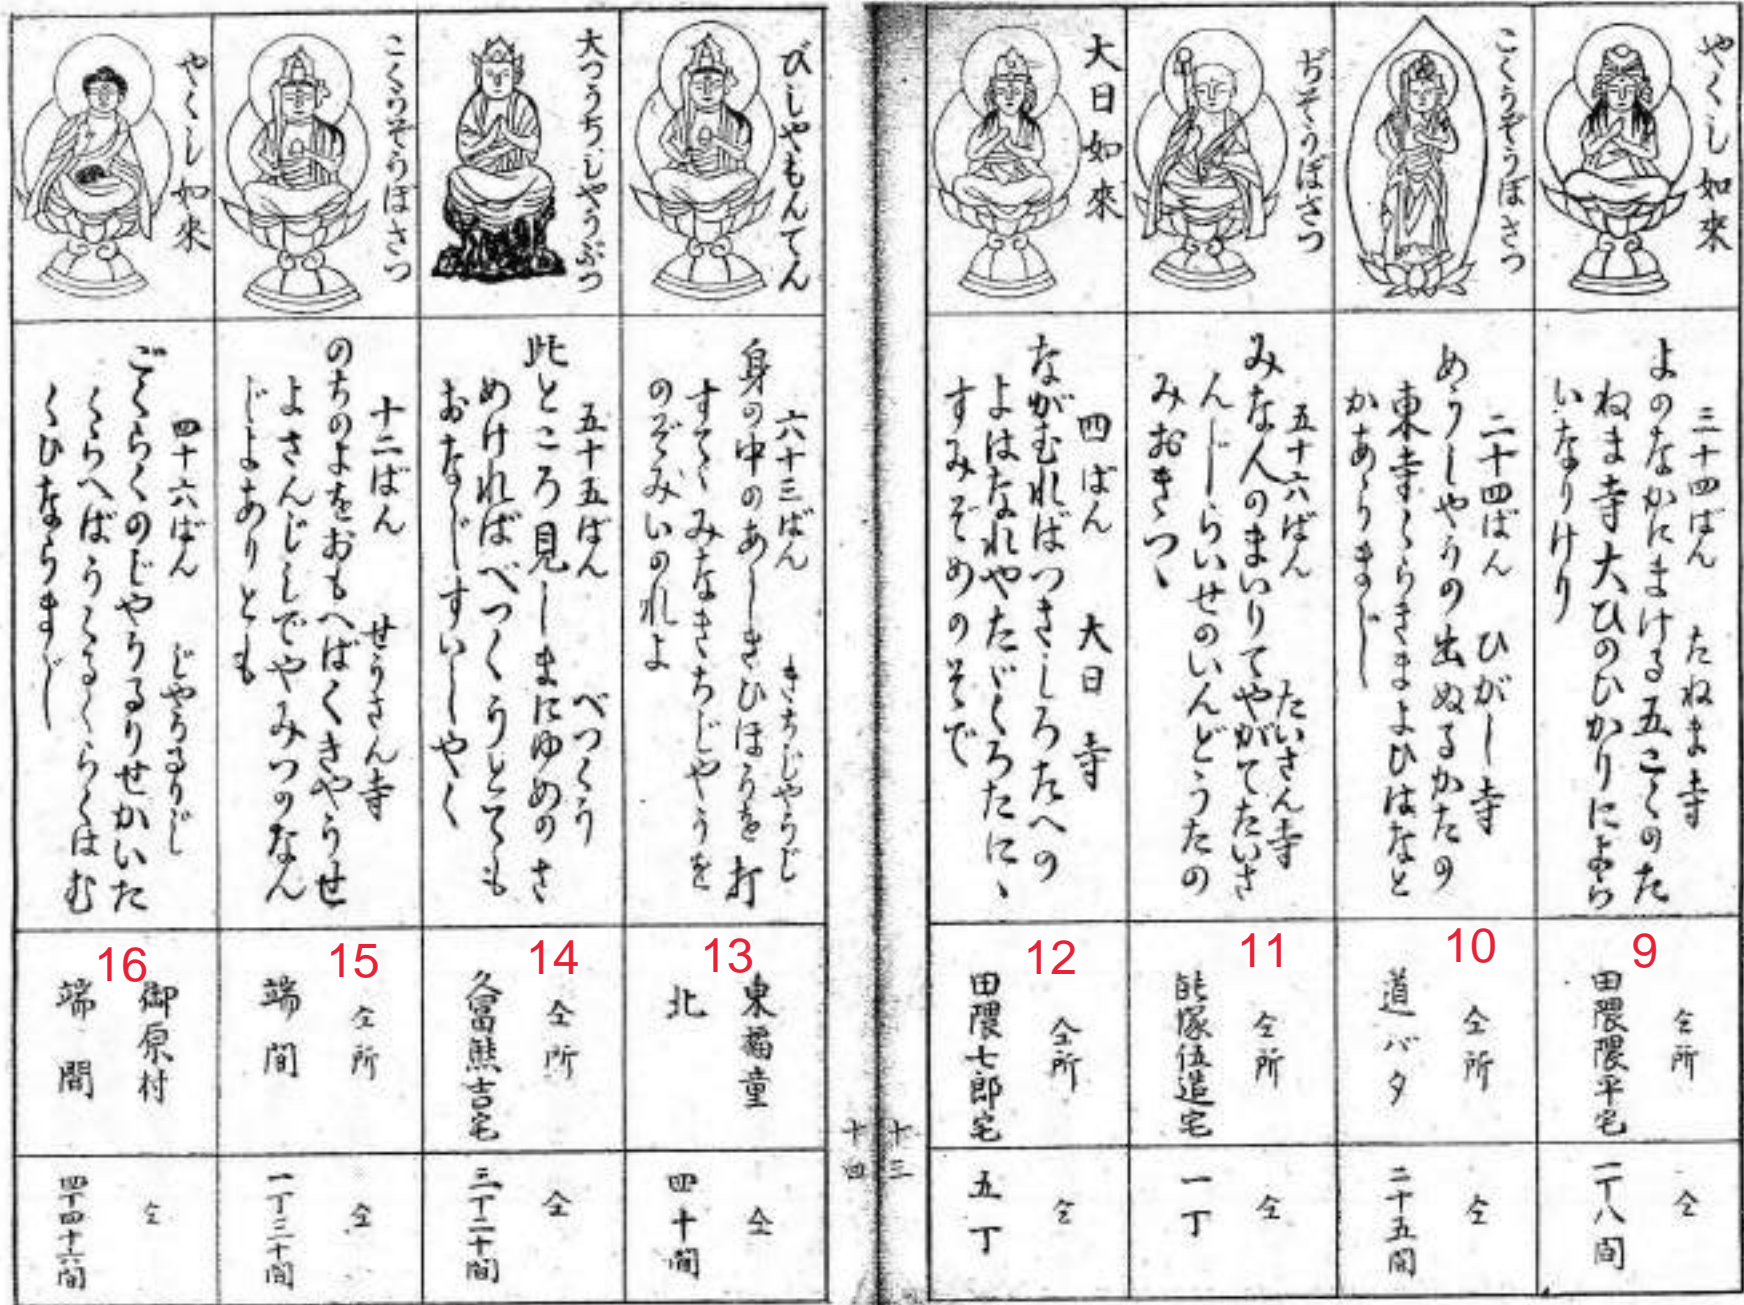 やくし如來
三十四ばん　たねま寺
よのなかにまける五こくのた
ねま寺大ひのひかりによら
いなりけり
9
仝所
田隈隈平宅
仝
一丁八间
こくうぞうぼさつ
二十四ばん　ひがし寺
めうしやうの出ぬるかたの
東寺くらきまよひはなと
かあらまじ
10
仝所
道バタ
仝
二十五间
ぢぞうぼさつ
五十六ばん　たいさん寺
みな人のまいりてやがてたいさ
んじらいせのいんどうたの
みおきつゝ
11
仝所
仝
一丁
大日如來
四ばん　大日寺
ながむればつきしろたへの
よはなれやたゞくろたにゝ
すみぞめのそで
12
仝所
田隈七郎宅
仝
五丁
十三
十四
びしやもんてん
六十三ばん　きちじやうじ
身の中のあしきひほうを打
すてゝみなきちじやうを
のぞみいのれよ
13
東福童
北
仝
四十间
大つうちしやうぶつ
五十五ばん　べつくう
此ところ見しまにゆめのさ
めければべつくうとても
おなじすいしやく
14
仝所
久富熊吉宅
仝
三丁二十间
こくうぞうぼさつ
十二ばん　せうさん寺
のちのよをおもへばくきやうせ
よさんじしでやみつのなん
じよありとも
15
仝所
端間
仝
一丁三十间
やくし如來
四十六ばん　じやうるりじ
ごくらくのじやうるりせかいた
くらへばうくるくらくは　む
くひならまじ
16
御原村
端間
仝
四丁四十六间